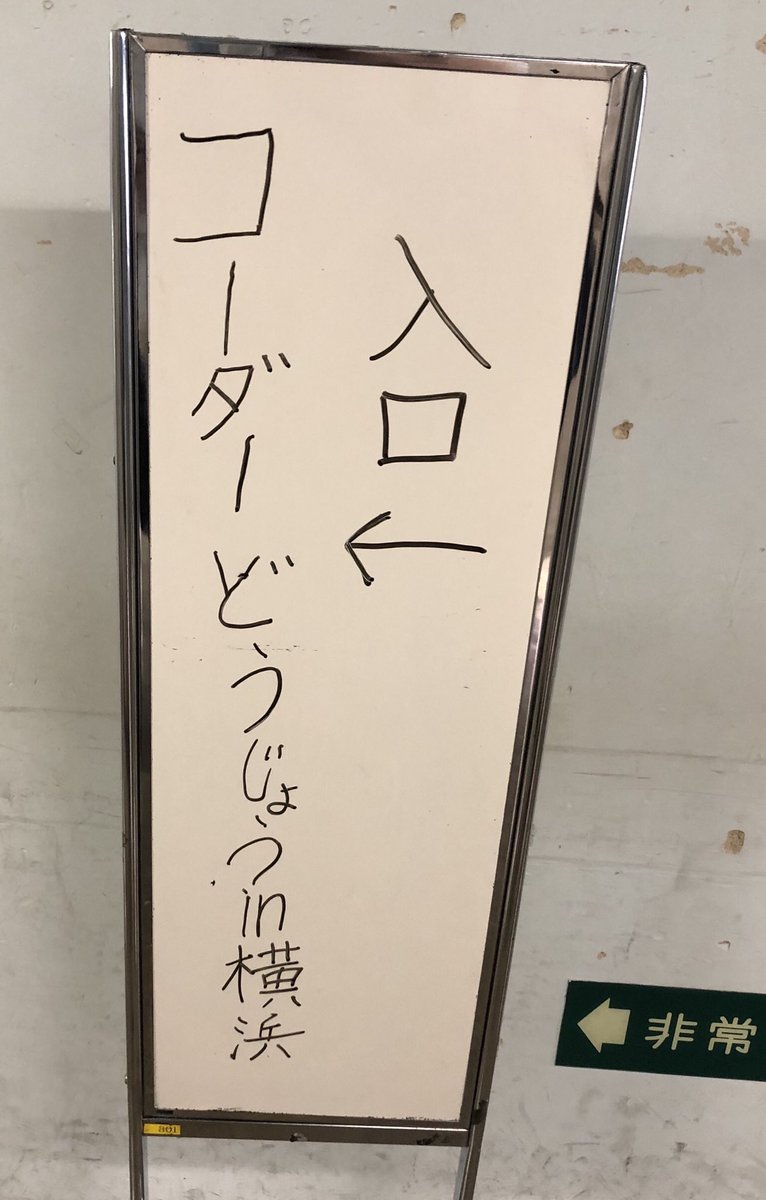 入口←
コーダーどうじょうin横浜
801
←非常